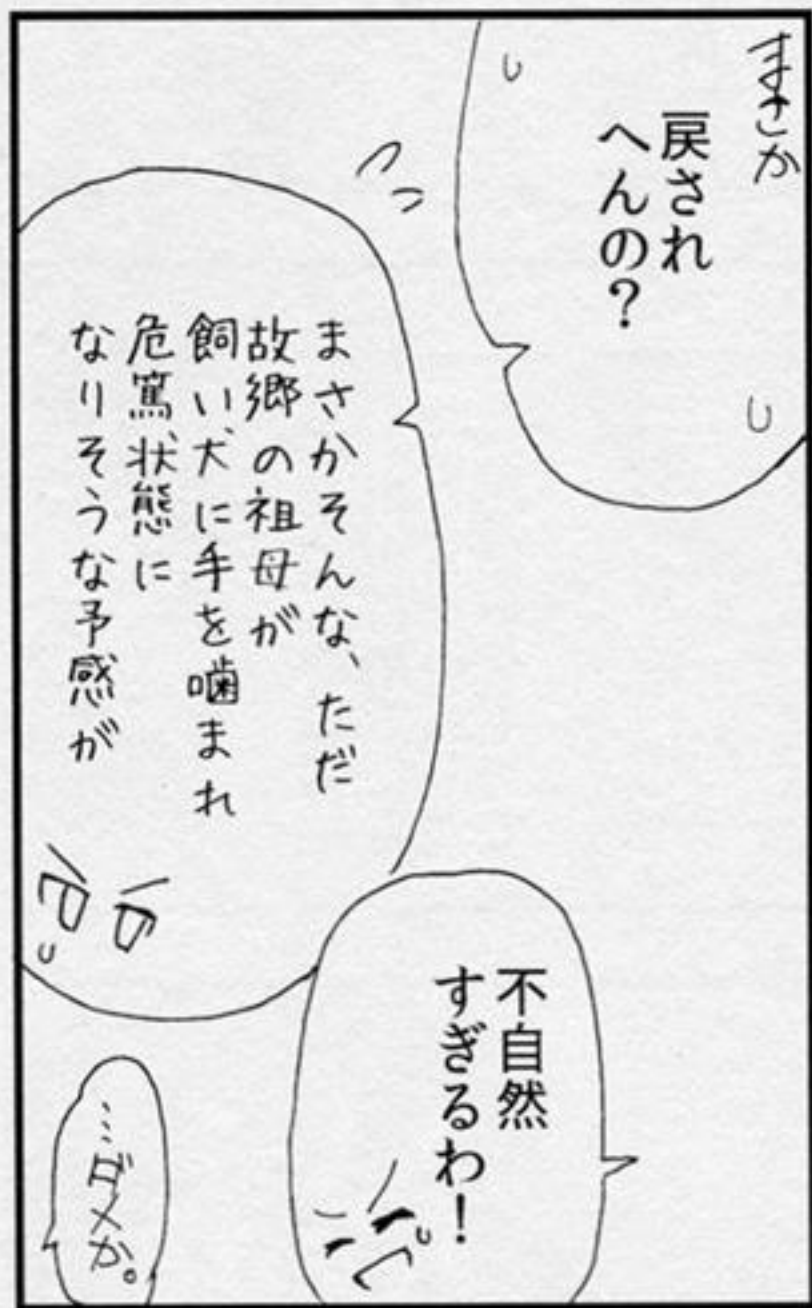 まさか
戻され
へんの？
まさかそんな、ただ
故郷の祖母が
飼い犬に手を噛まれ
危篤状態に
なりそうな予感が
不自然
すぎるわ！
…ダメか。